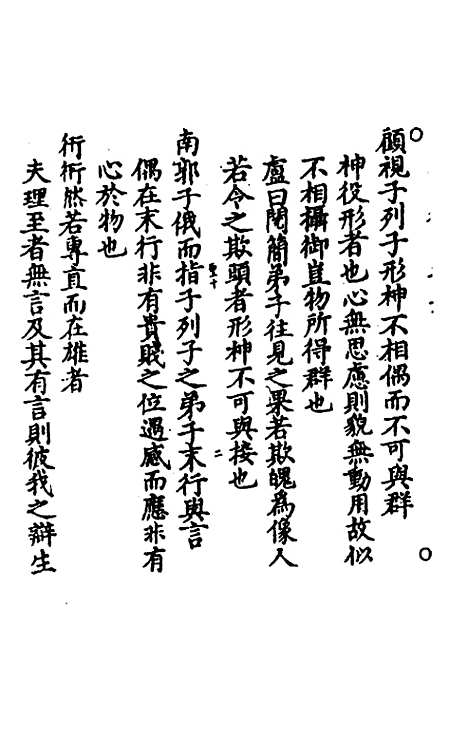 顧視子列子形神不相偶而不可與群
神役形者也心無思慮則貌無動用故似
不相攝御豈物所得群也
盧曰閱簡弟子往見之果若欺魄為像人
若令之欺頭者形神不可與接也
南郭子俄而指子列子之弟子末行與言
偶在末行非有貴賤之位遇感而應非有
心於物也
衎衎然若專直而在雄者
夫理至者無言及其有言則彼我之辯生